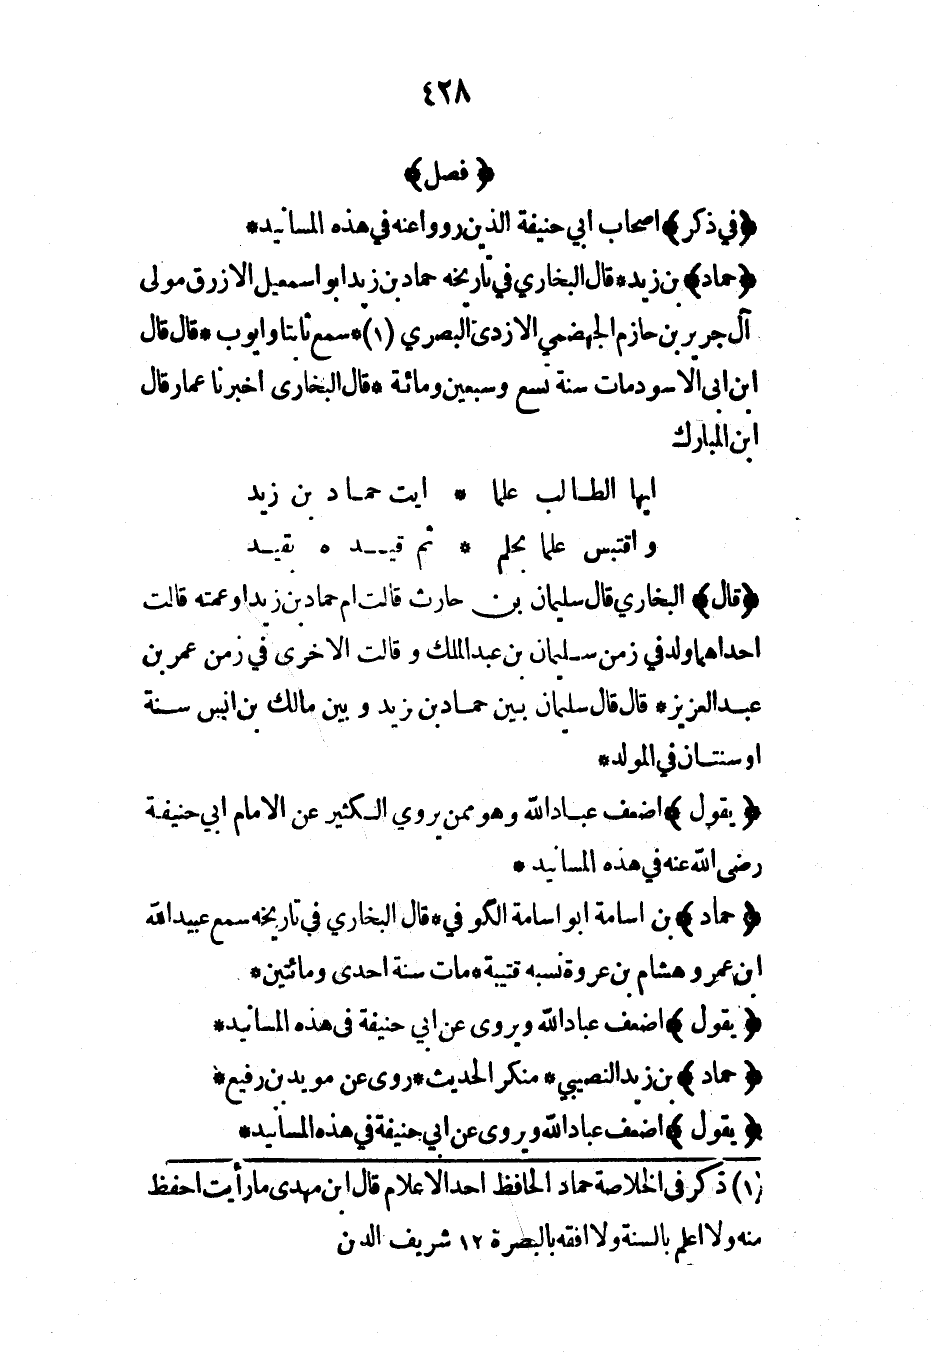 ٤٢٨
﴿ فصل ﴾
﴿ في ذكر ﴾ اصحاب ابي حنيفة الذين رووا عنه في هذه المسانيد *
﴿ حماد ﴾ بن زيد * قال البخاري في تاريخه حماد بن زيد ابو اسمعيل الازرق مولى
آل جرير بن حازم الجهضمي الازدى البصري (١) * سمع ثابتا و ايوب * قال قال
ابن ابى الاسود مات سنة تسع وسبعين ومائة * قال البخارى اخبرنا عمار قال
ابن المبارك
ايها الطالب علما * ايت حماد بن زيد
و اقتبس علما بحلم * ثم قيده بقيد
﴿ قال ﴾ البخاري قال سليمان بن حارث قالت ام حماد بن زيد او عمته قالت
احداهما ولد في زمن سليمان بن عبد الملك و قالت الاخرى في زمن عمر بن
عبد العزيز * قال قال سليمان بين حماد بن زيد و بين مالك بن انس سنة
او سنتان في المولد *
﴿ يقول ﴾ اضعف عباد الله وهو ممن يروي الكثير عن الامام ابي حنيفة
رضى الله عنه في هذه المسانيد *
﴿ حماد ﴾ بن اسامة ابو اسامة الكوفي * قال البخاري في تاريخه سمع عبيد الله
ابن عمر و هشام بن عروة نسبه قتيبة * مات سنة احدى ومائتين *
﴿ يقول ﴾ اضعف عباد الله ويروى عن ابي حنيفة فى هذه المسانيد *
﴿ حماد ﴾ بن زيد النصيبي * منكر الحديث * روى عن مويد بن رفيع *
﴿ يقول ﴾ اضعف عباد الله ويروى عن ابي حنيفة في هذه المسانيد *
(١) ذكر فى الخلاصة حماد الحافظ احد الاعلام قال ابن مهدى ما رأيت احفظ
منه ولا اعلم بالسنة ولا افقه بالبصرة ١٢ شريف الدن